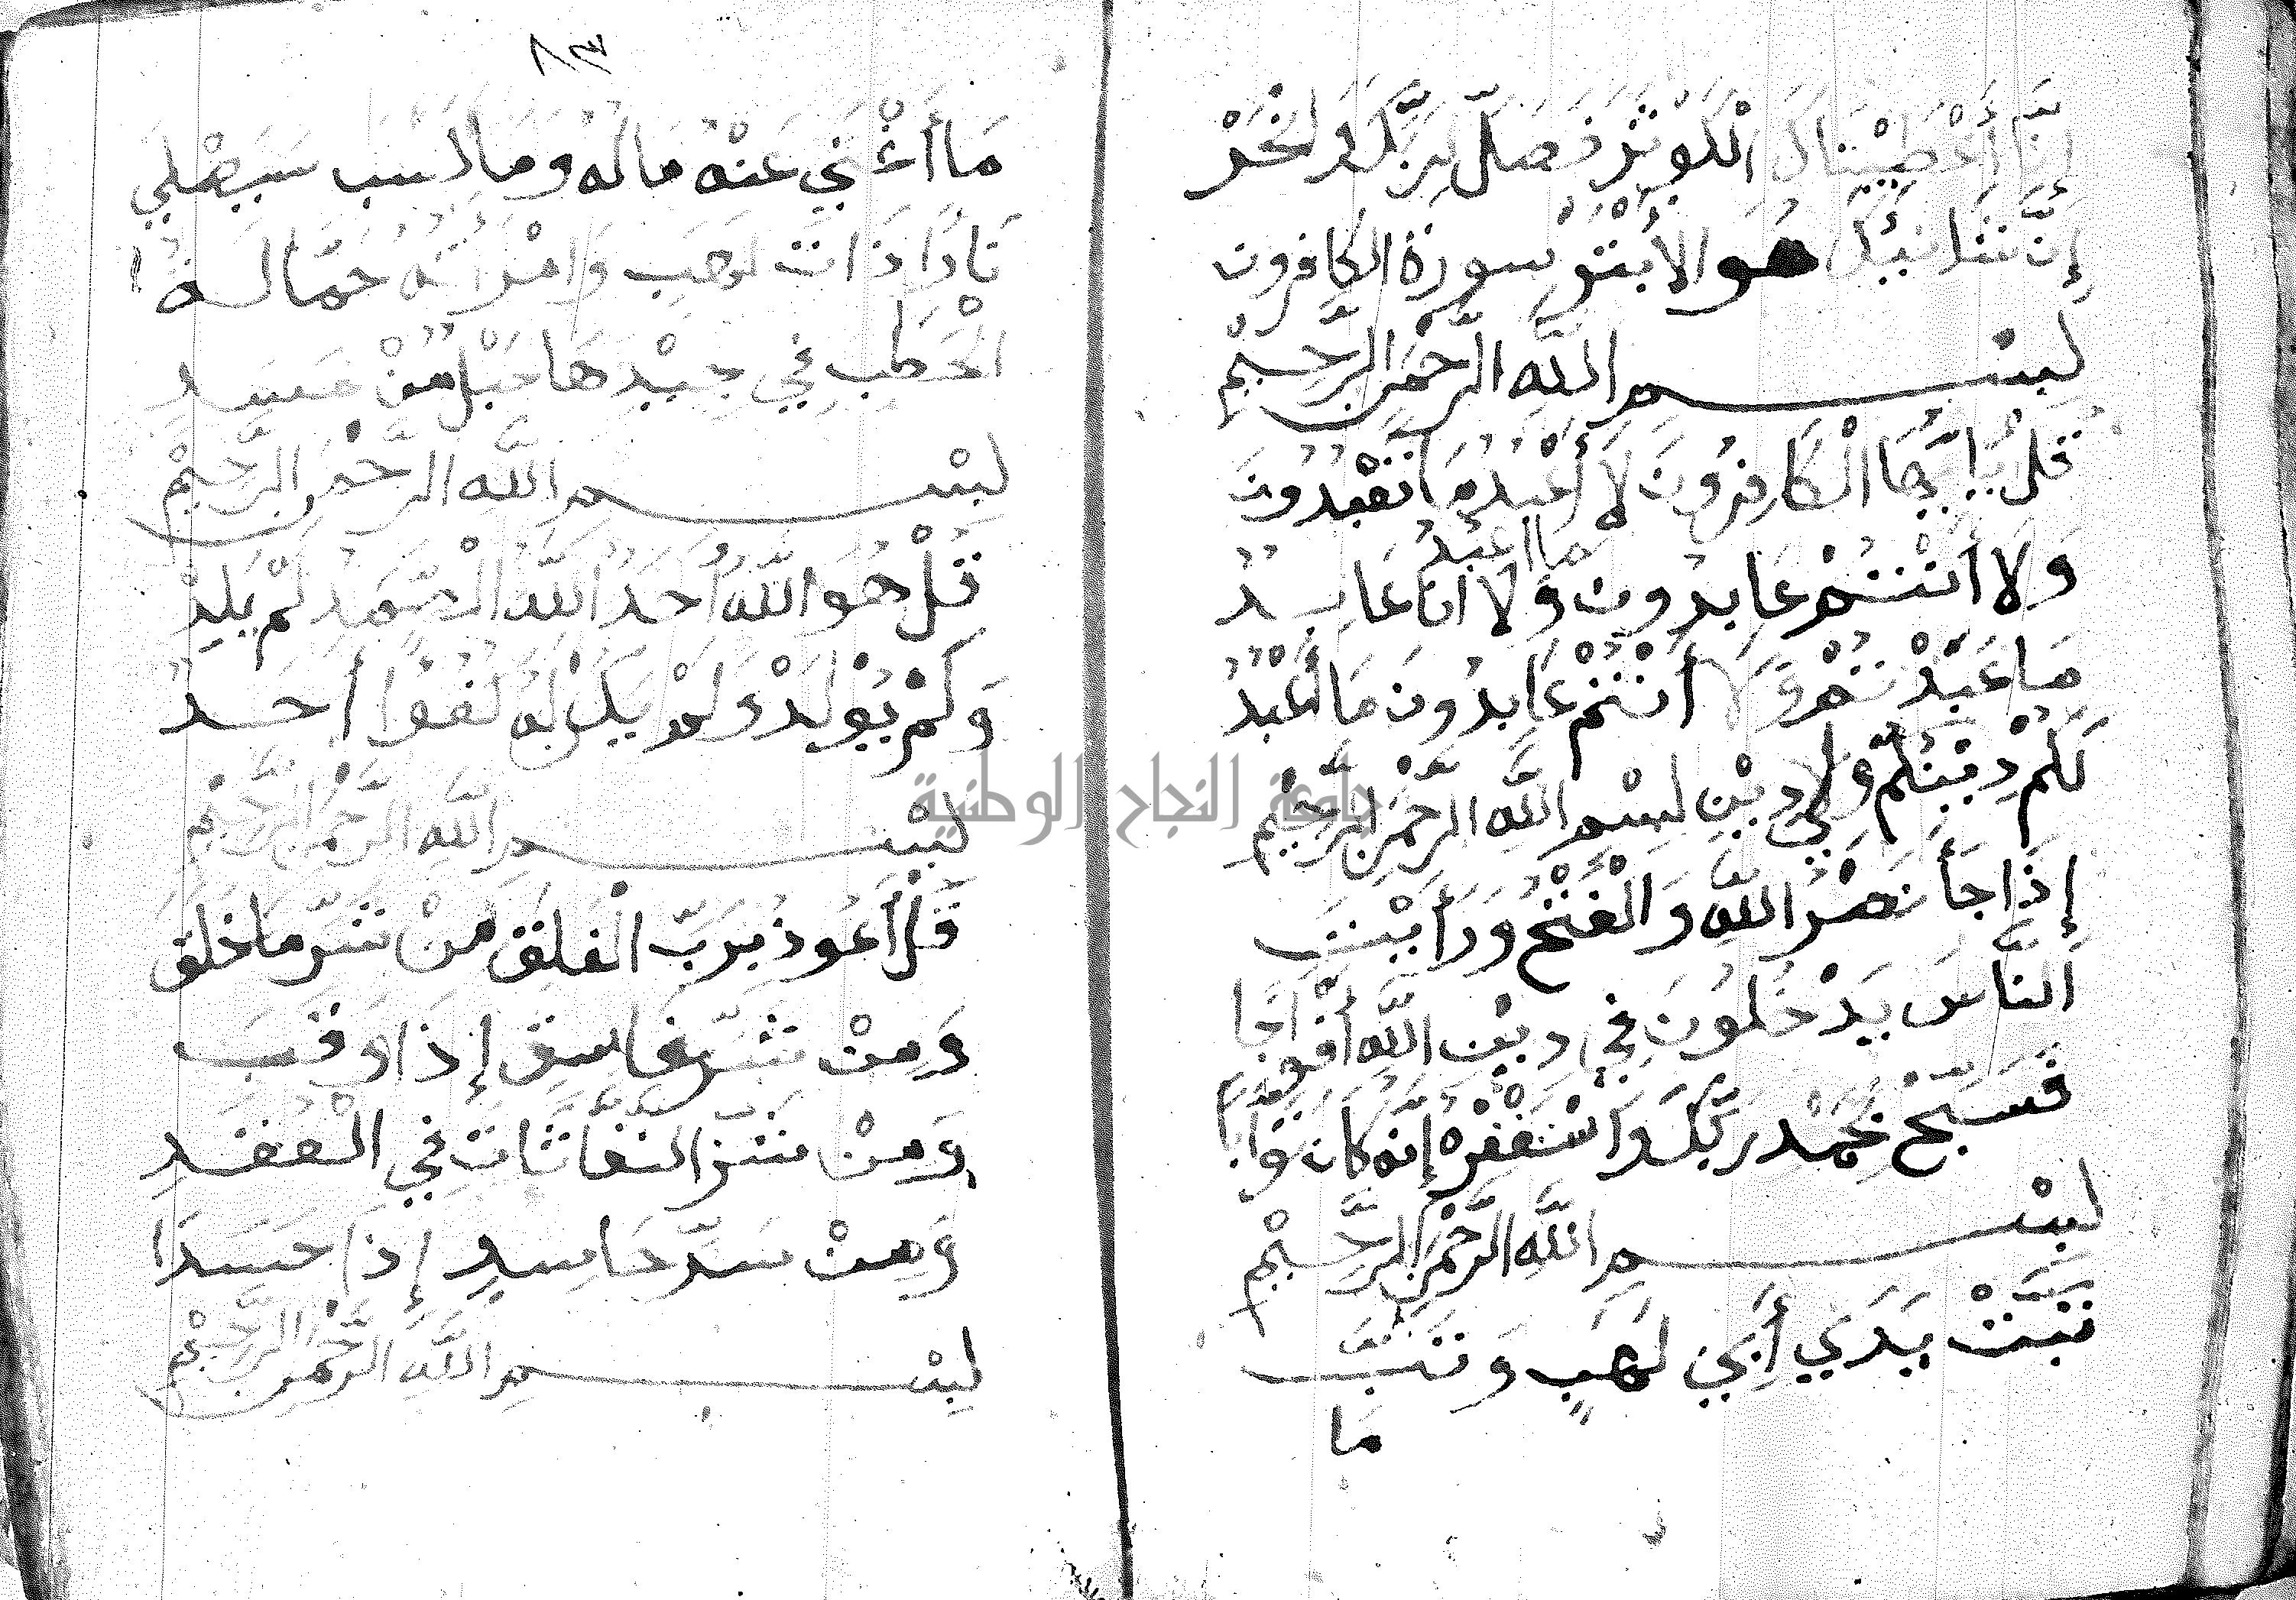 إنَّا أَعْطَيْنَاكَ الْكَوْثَرَ فَصَلِّ لِرَبِّكَ وَانْحَرْ
إِنَّ شَانِئَكَ هُوَ الأَبْتَر سورة الكافرون
بِسْم اللَّهِ الرَّحْمَنِ الرَّحِيْمِ
قُلْ يَا أَيُّهَا الْكَافِرُونَ لَا أَعْبُدُ مَا تَعْبُدُونَ
وَلَا أَنْتُمْ عَابِدُونَ مَا أَعْبُدُ وَلَا أنَا عَابِدٌ
مَا عَبَدْتُمْ وَلَا أَنْتُمْ عَابِدُونَ مَا أَعْبُدُ
لَكُمْ دِيْنُكُمْ وَلِيَ دِيْنِ بِسْمِ اللَّهِ الرَّحْمَنِ الرَّحِيْمِ
إِذَا جَأَ نَصْرُ اللَّهِ وَالْفَتْحُ وَرَأَيْتَ
النَّاسَ يَدْخُلُونَ فِي دِيْنِ اللَّهِ أَفْوَاجَا
فَسَبِّحْ بِحَمْدِ رَبِّكَ وَاسْتَغْفِرْهُ إِنَّه كَانَ تَوَّابًا
بِسْم اللَّهِ الرَّحْمَنِ الرَّحِيْمِ
تَبَّتْ يَدَي أَبِي لَهَبٍ وَتَبَّ
مَا
٨٣
مَا أَغْنَي عَنْهُ مَالُه وَمَا كَسَب سَيَصْلَي
نَارًا ذَاتَ لَهَبٍ وَامْرَأَتُهُ حَمَّالَةُ
الْحَطَبِ فِي جِيْدِهَا حَبْلٌ مِنْ مَسَدٍ
بِسْم اللَّه الرحْمَنِ الرَّحِيْمِ
قُلْ هُوَ اللَّهُ أَحَدٌ اللَّهُ الْصَّمَدُ لَمْ يَلِدْ
وَلَمْ يُوْلَدْ وَلَمْ يَكُنْ لَهُ كُفُوًا أَحَدٌ
بِسْم اللَّهِ الرَّحْمَنِ الرَّحِيْمِ
قُلْ أَعُوذُ بِرَبِّ الْفَلَقِ مِنْ شَرِّ مَا خَلَقَ
وَمِنْ شَرِّ غَاسِقٍ إِذَا وَقَبَ
وَمِنْ شَرِّ النَّفَّاثَاتِ فِي الْعُقَدِ
وَمِنْ شَرِّ حَاسِدٍ إِذَا حَسَدَا
بِسْم اللَّهِ الرَّحْمَنِ الرَّحِيْمِ
جامعة النجاح الوطنية